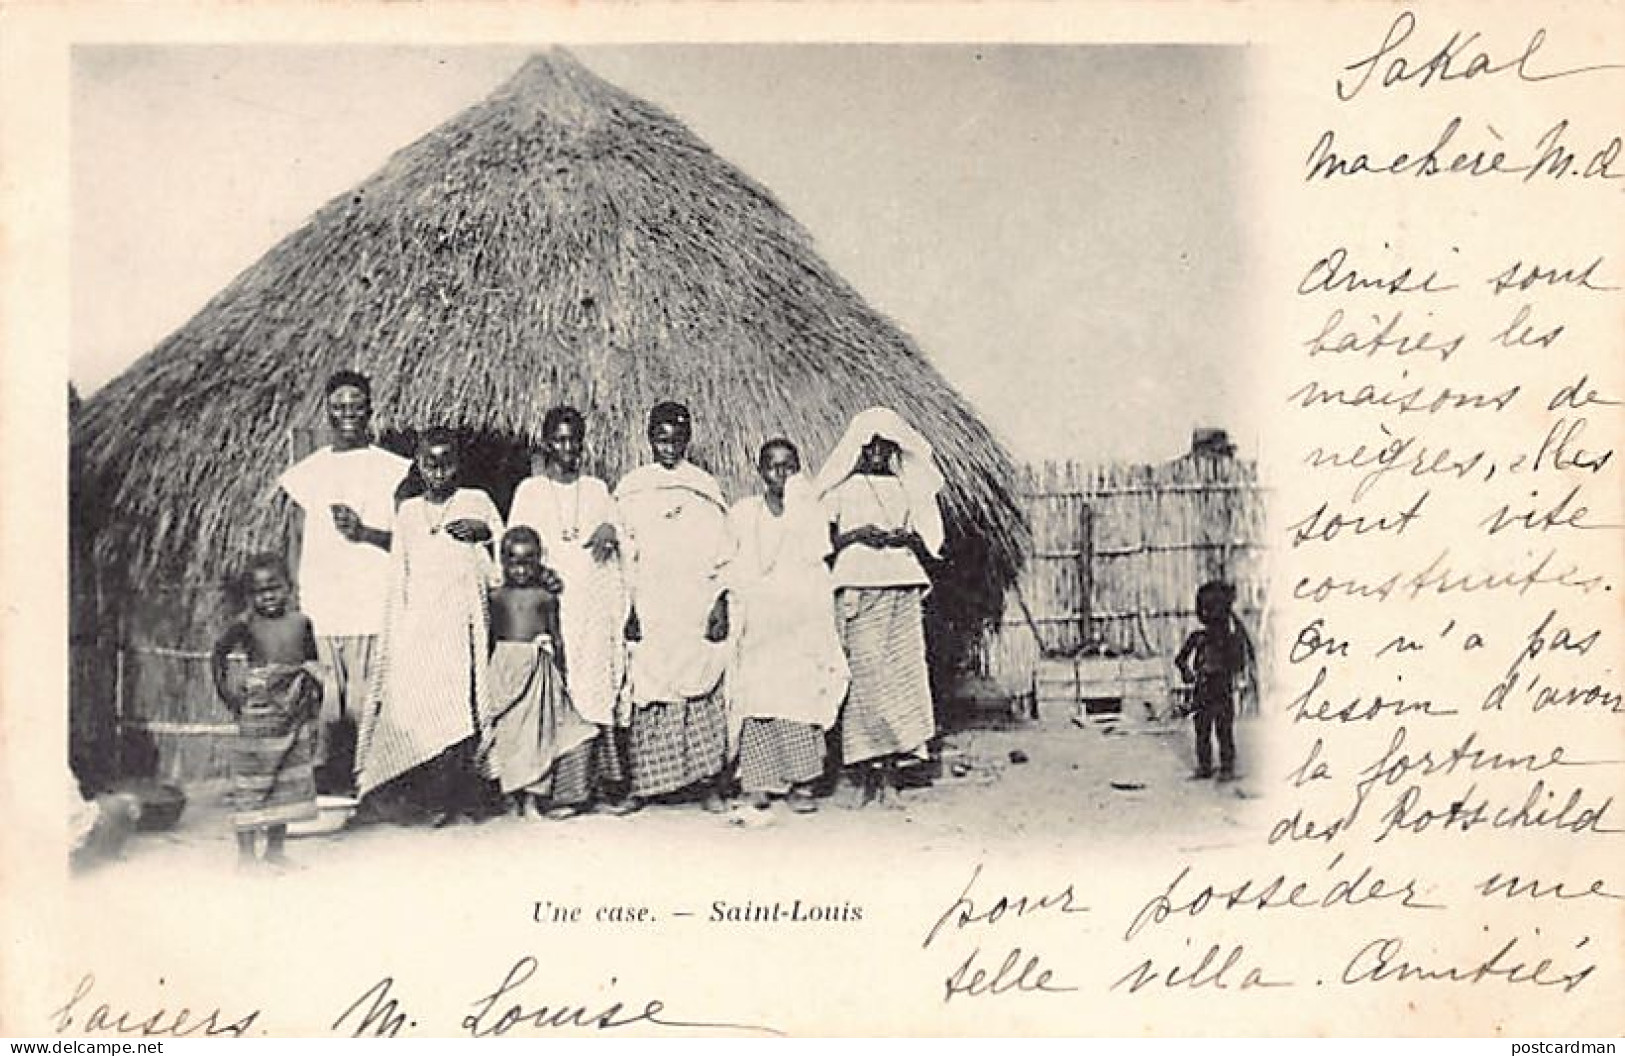 Sakal
Ma chère M. A
Ainsi sont
bâties les
maisons de
nègres, elles
sont vite
construites.
On n'a pas
besoin d'avoir
la fortune
des Rotschild
pour posséder une
telle villa. Amitiés
Une case. — Saint-Louis
baisers. M. Louise
delcampe.net
postcardman